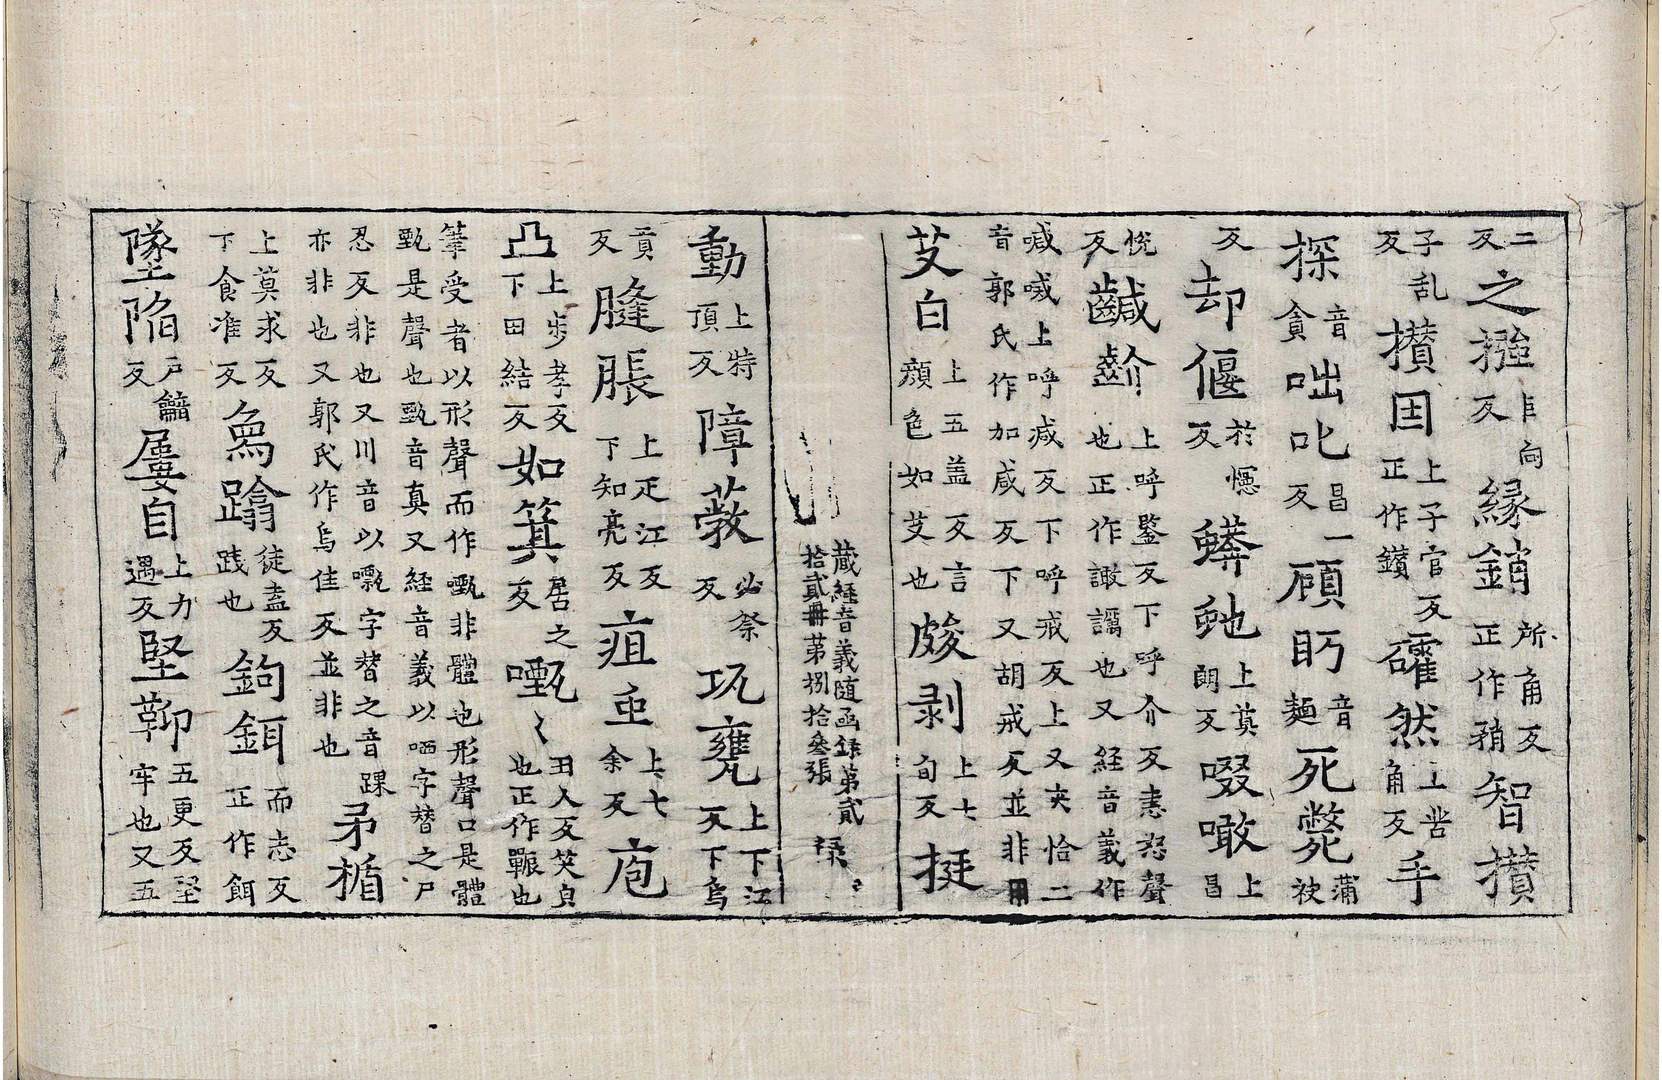 二反之㨘巨向反緣銷所角反正作矟智攢
子乱反攢囯上子官反正作鑚䃥然上苦角反手
探音貪咄叱昌一反頋眄音麺死斃蒲袂
反却偃於憓反蟒虵上莫朗反啜噉上昌
悅反鹹齘上呼鑒反下呼介反恚怒聲也正作諏譪也又経音義作
喊㗾上呼减反下呼戒反上又夾恰二音郭氏作加咸反下又胡戒反並非用
艾白上五盖反言顔色如艾也皴剥上七旬反挺
藏経音義随函録第貳拾貳冊第捌拾叄張
動上特頂反障蔽必祭反瓨甕上下江反下烏
貢反膖脹上疋江反下知亮反疽䖝上七余反庖
凸上步孝反下田結反如箕居之反㽀〻田人反笑皃也正作囅也
筆受者以形聲而作㽀非體也形聲口是體甄是聲也甄音真又経音義以哂字替之尸
忍反非也又川音以㗚字替之音踝亦非也又郭氏作烏佳反並非也矛楯
上莫求反下食准反為蹹徒盍反践也鉤鉺而志反正作餌
墜陷户韽反屢自上力遇反堅鞕五更反堅牢也又五